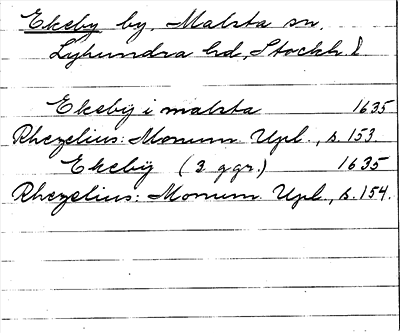 Ekeby by, Malsta sn,
Lyhundra hd, Stockh. l.
Ekebÿ i malsta 1635
Rhezelius: Monum. Upl., s. 153
Ekebÿ (3 ggr.) 1635
Rhezelius: Monum. Upl., s. 154.